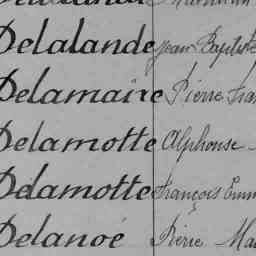 Delalande Jean Baptiste
Delamaire Pierre
Delamotte Alphonse
Delamotte François
Delanoé Pierre